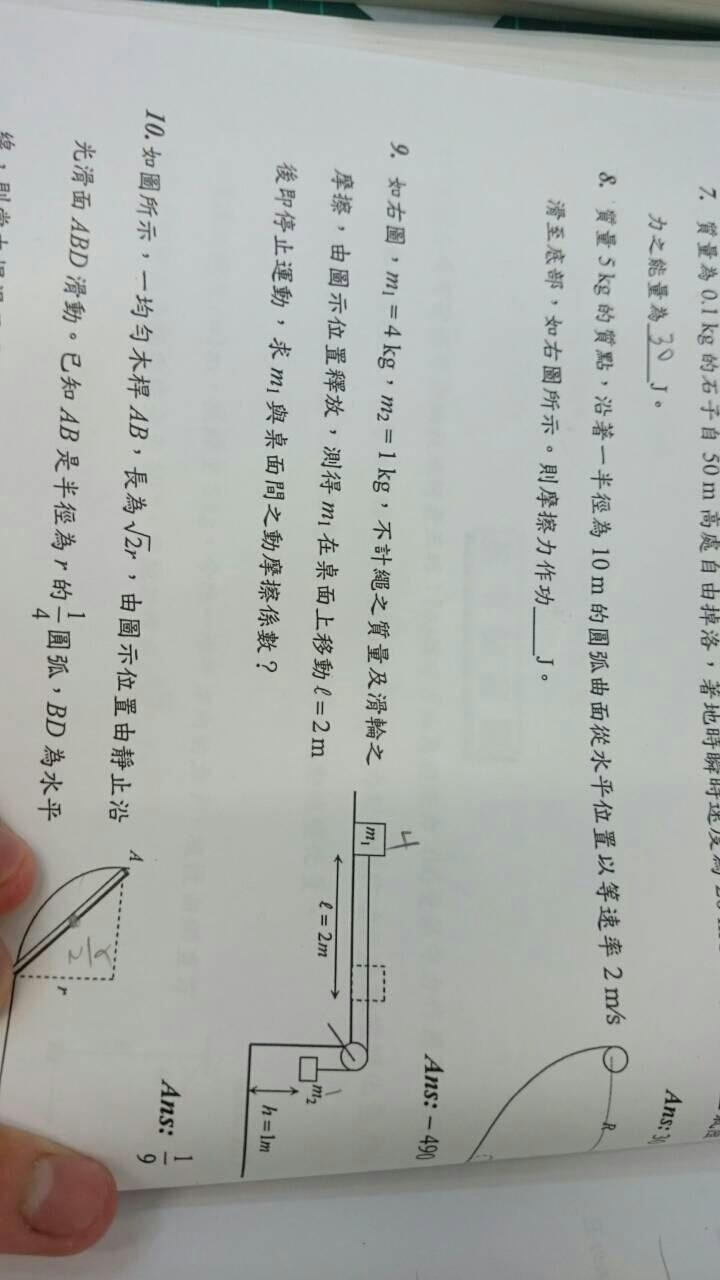 7. 質量為 0.1 kg 的石子自 50 m 高處自由掉落，著地時瞬時速度為
力之能量為 30 J。
Ans: 30
8. 質量 5 kg 的質點，沿著一半徑為 10 m 的圓弧曲面從水平位置以等速率 2 m/s
滑至底部，如右圖所示。則摩擦力作功____J。
R
Ans: – 490
9. 如右圖，m₁ = 4 kg，m₂ = 1 kg，不計繩之質量及滑輪之
摩擦，由圖示位置釋放，測得 m₁ 在桌面上移動 ℓ = 2 m
後即停止運動，求 m₁ 與桌面間之動摩擦係數？
4
m₁
ℓ = 2m
m₂
1
h = 1m
Ans: 1/9
10. 如圖所示，一均勻木桿 AB，長為 √2r，由圖示位置由靜止沿
光滑面 ABD 滑動。已知 AB 是半徑為 r 的 1/4 圓弧，BD 為水平
A
r/2
r